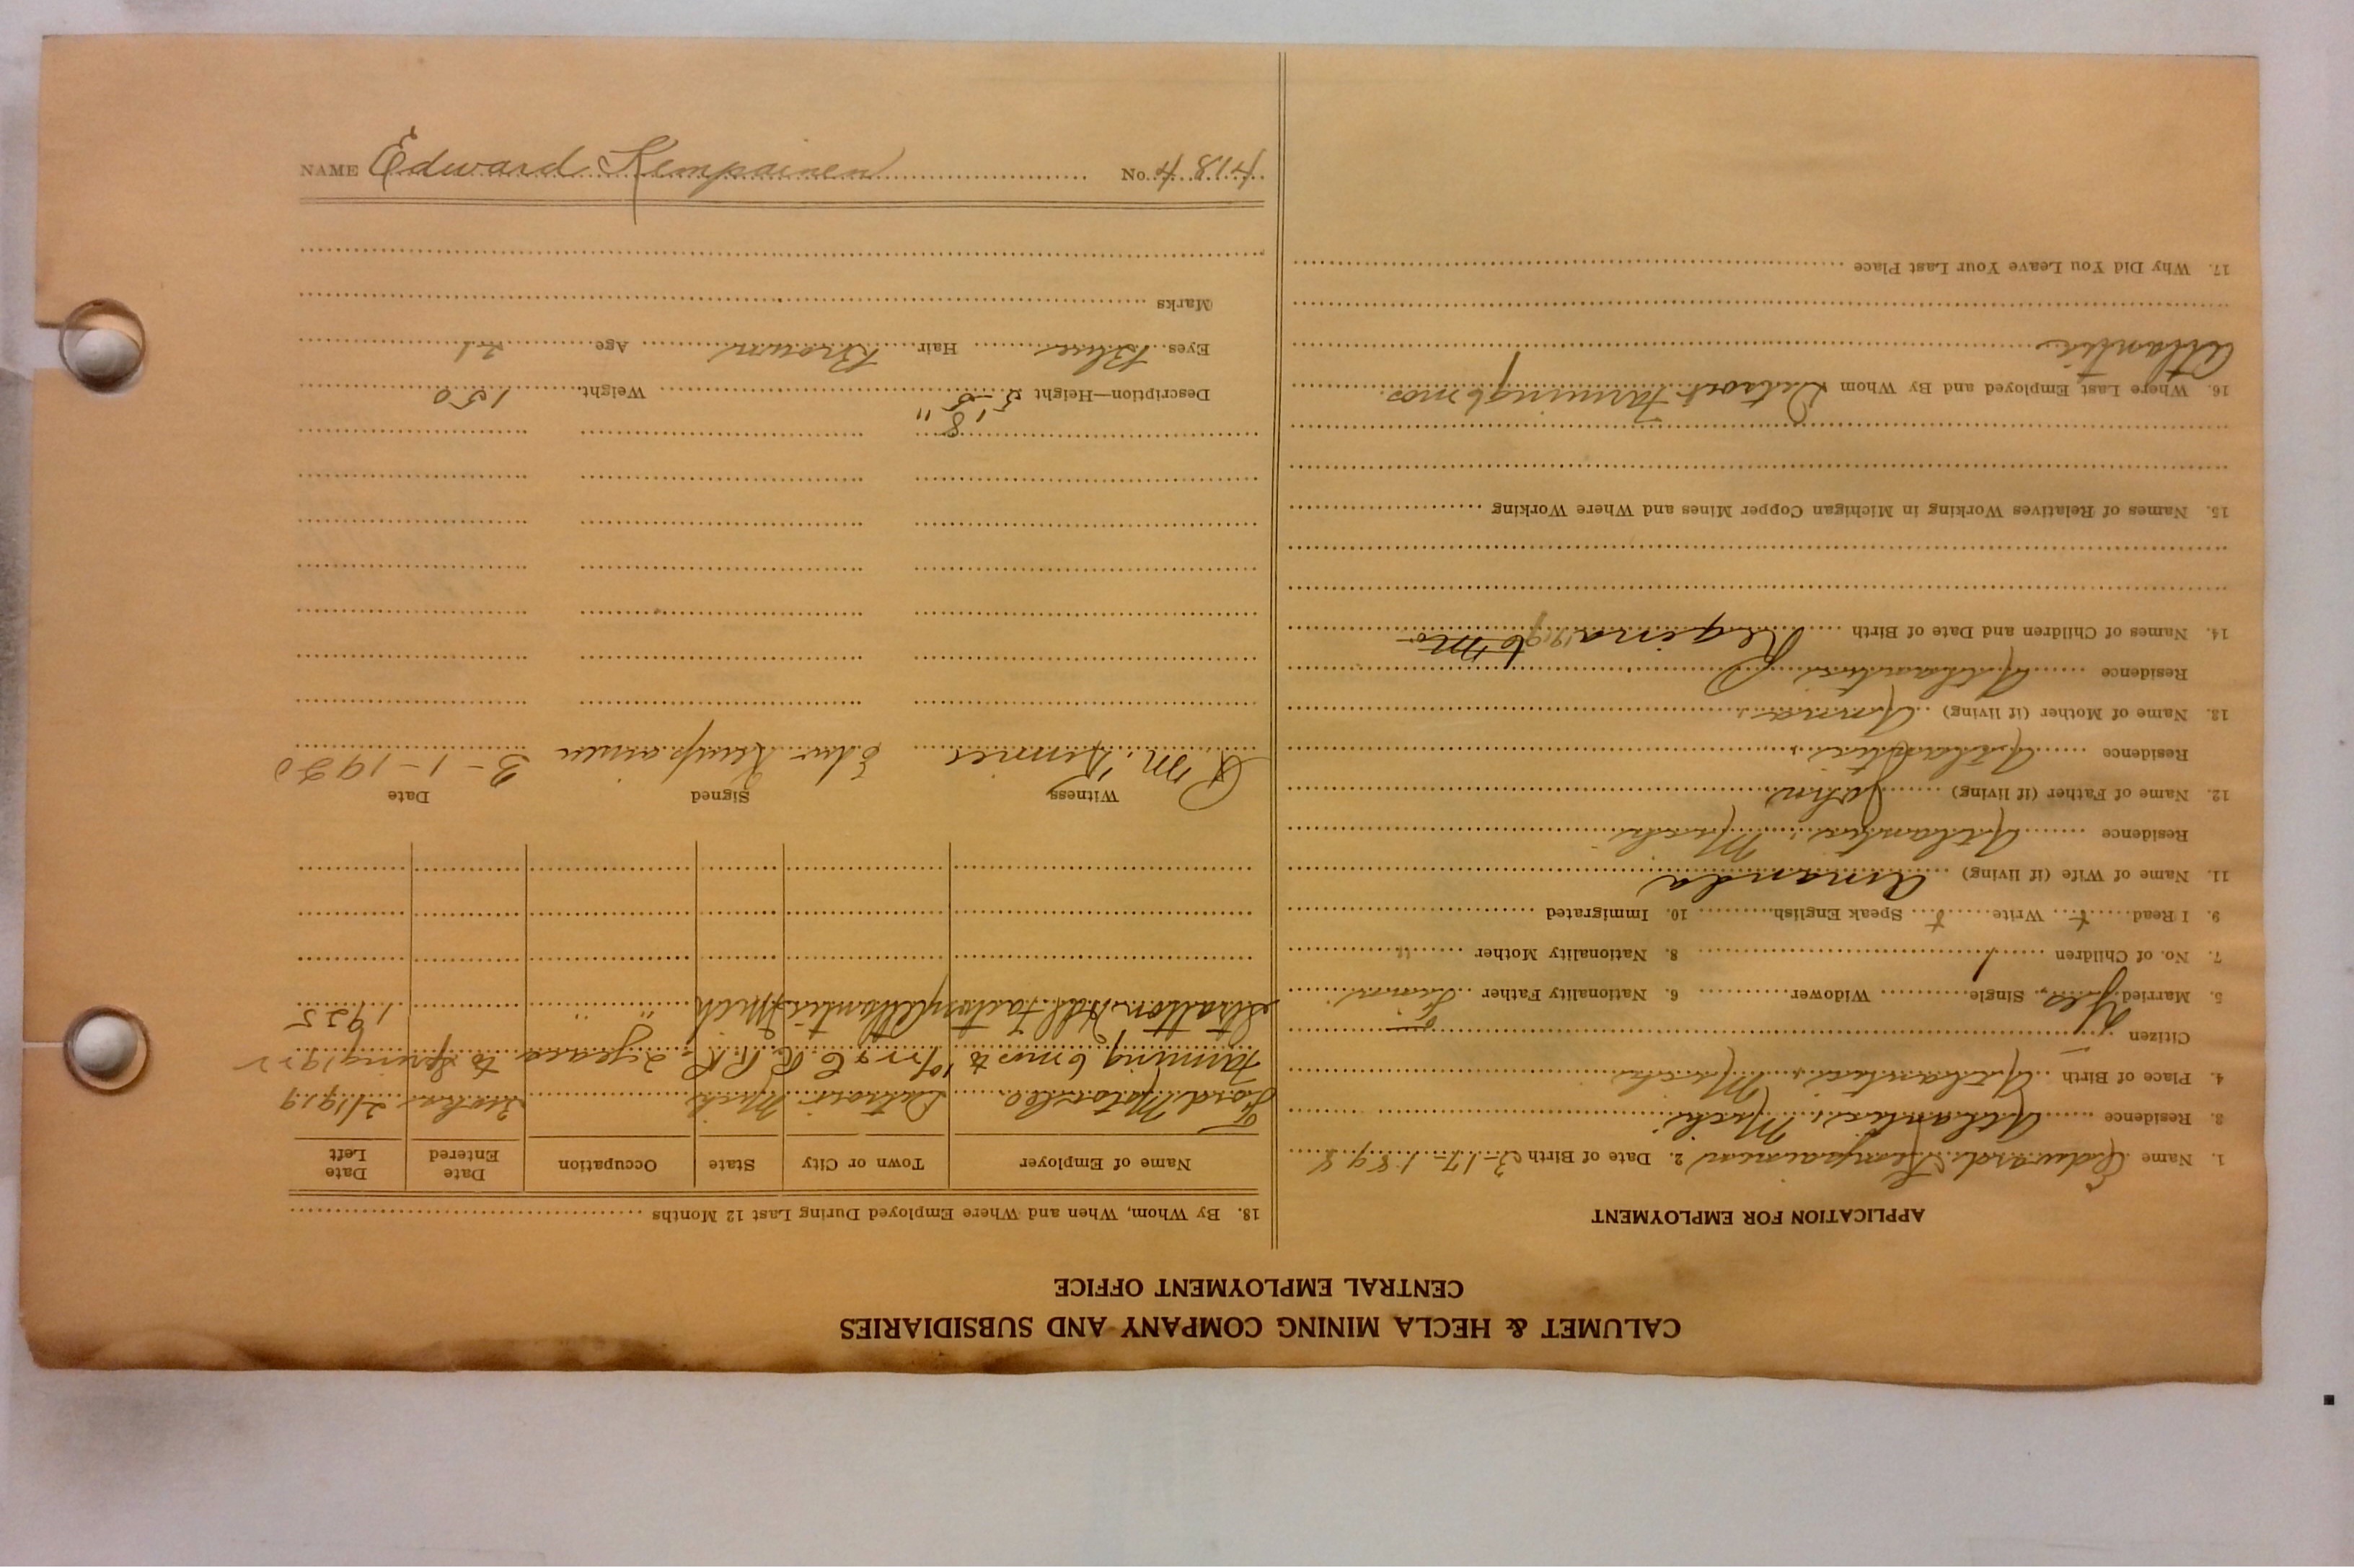 CALUMET & HECLA MINING COMPANY AND SUBSIDIARIES
CENTRAL EMPLOYMENT OFFICE
APPLICATION FOR EMPLOYMENT
1. Name Edward Kempainen 2. Date of Birth 3-17-1898
3. Residence Atlantic, Mich
4. Place of Birth Atlantic, Mich
Citizen
5. Married Yes Single Widower 6. Nationality Father Finn
7. No. of Children 1 8. Nationality Mother "
9. I Read Write Speak English 10. Immigrated
11. Name of Wife (if living) Amanda
Residence Atlantic, Mich
12. Name of Father (if living) John
Residence Atlantic
13. Name of Mother (if living) Anna
Residence Atlantic
14. Names of Children and Date of Birth Regina 6 mo
15. Names of Relatives Working in Michigan Copper Mines and Where Working
16. Where Last Employed and By Whom Detroit Farming 6 mos.
Atlantic
17. Why Did You Leave Your Last Place
18. By Whom, When and Where Employed During Last 12 Months
Name of Employer Town or City State Occupation Date Entered Date Left
Ford Motor Co. Detroit Mich 1919
Farming 6 mos to C. R. R.R. 2 years to Spring 1922
Stratton Hdl. Factory Atlantic Mich " " 1925
Witness Signed Date
Edw Kempainen 3-1-1920
Description—Height 5' 8" Weight 150
Eyes Blue Hair Brown Age 21
Marks
NAME Edward Kempainen No. 4814